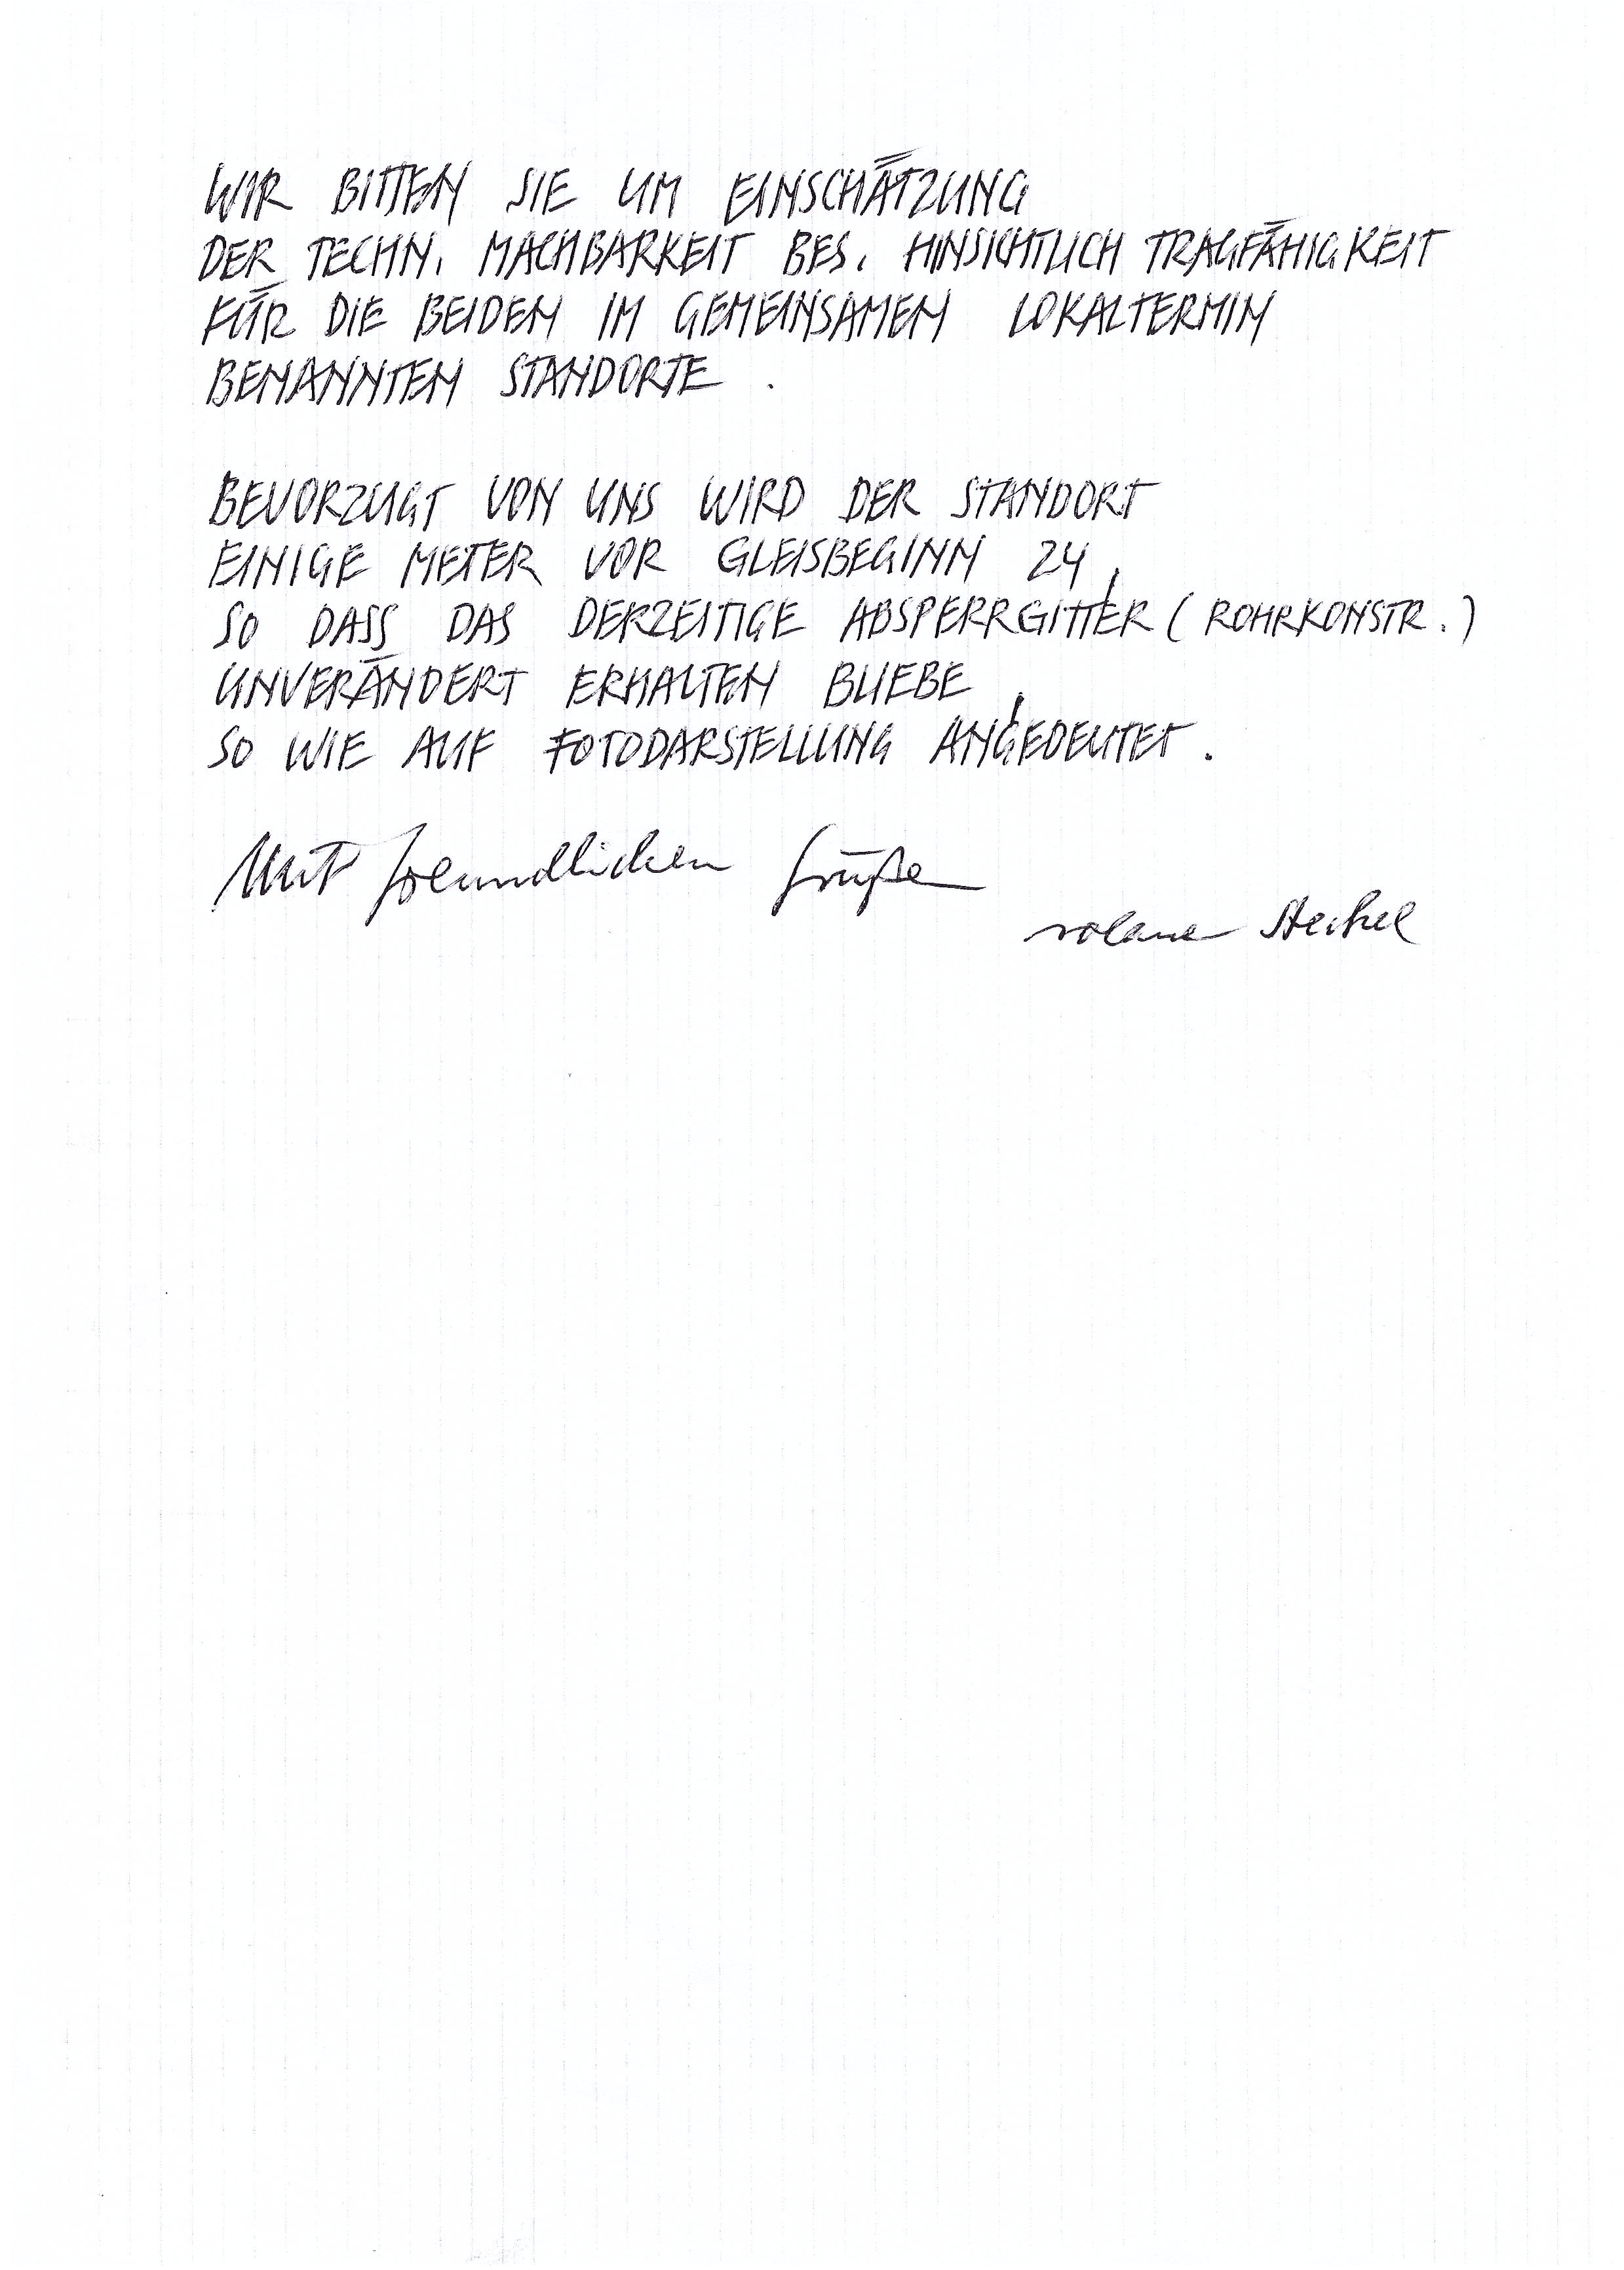 WIR BITTEN SIE UM EINSCHÄTZUNG
DER TECHN. MACHBARKEIT BES. HINSICHTLICH TRAGFÄHIGKEIT
FÜR DIE BEIDEN IM GEMEINSAMEN LOKALTERMIN
BENANNTEN STANDORTE .
BEVORZUGT VON UNS WIRD DER STANDORT
EINIGE METER VOR GLEISBEGINN 24,
SO DASS DAS DERZEITIGE ABSPERRGITTER (ROHRKONSTR.)
UNVERÄNDERT ERHALTEN BLIEBE,
SO WIE AUF FOTODARSTELLUNG ANGEDEUTET.
Mit freundlichen Grüßen